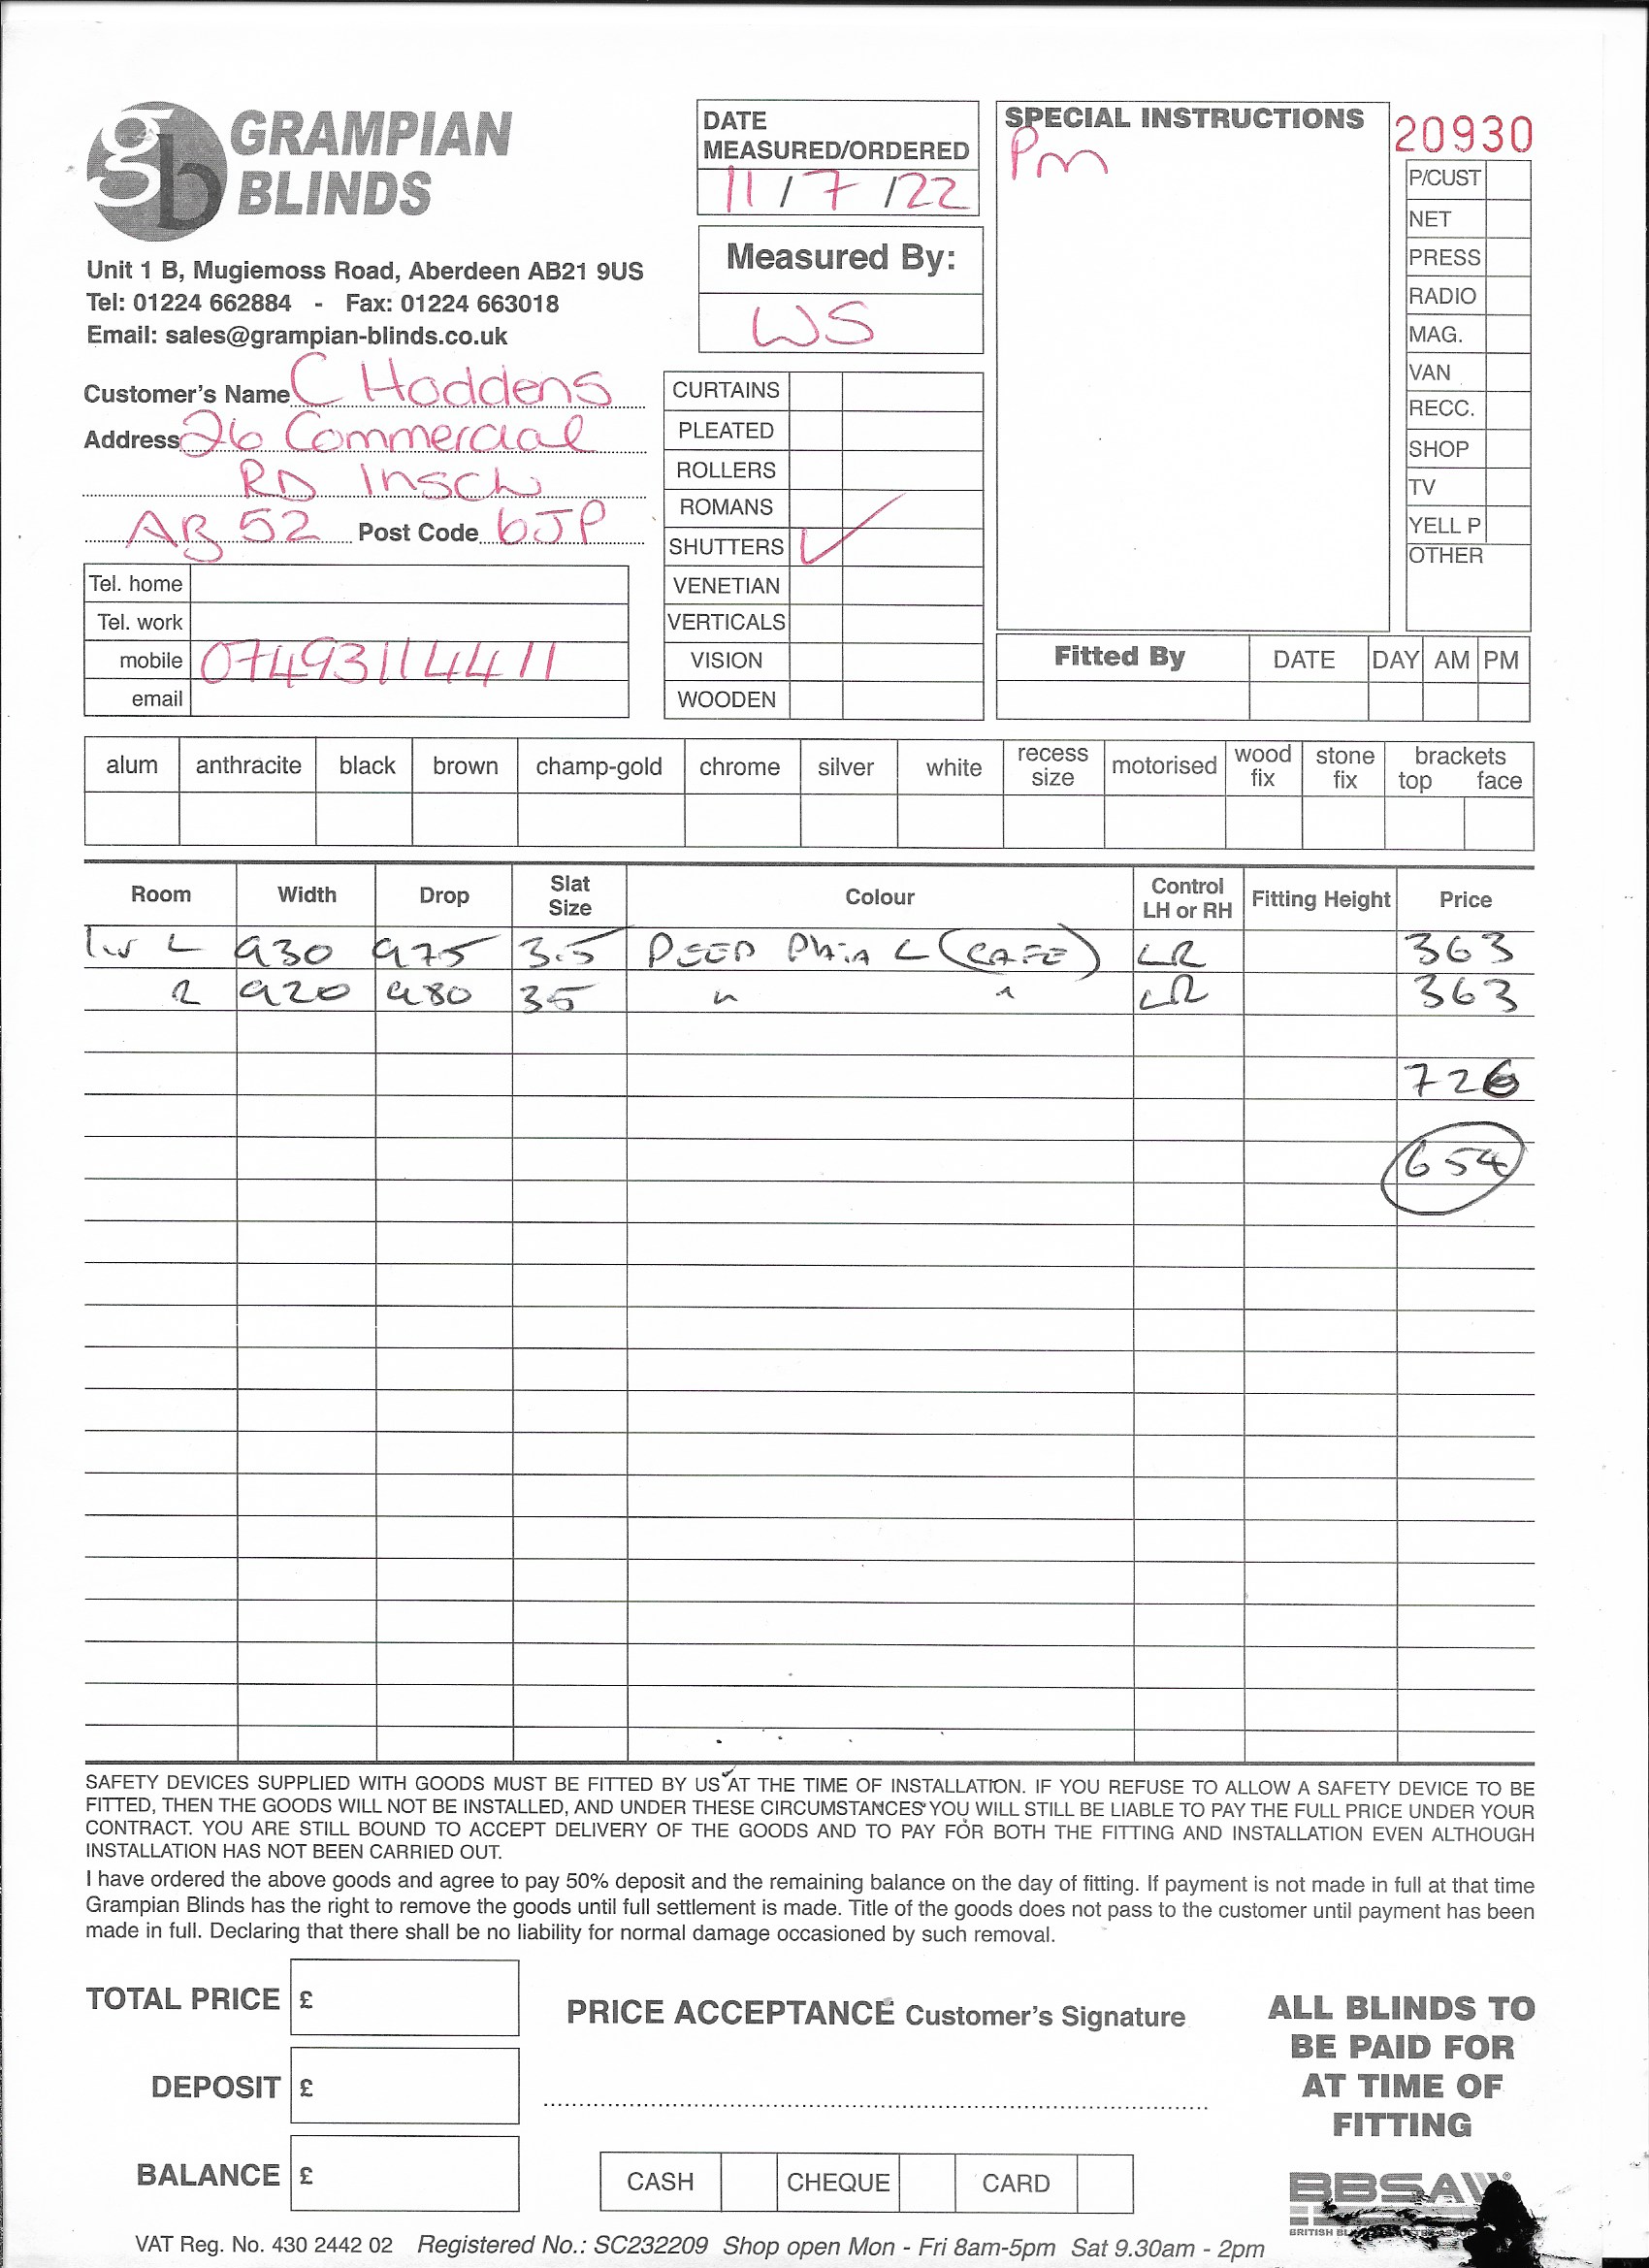 gb GRAMPIAN
BLINDS
Unit 1 B, Mugiemoss Road, Aberdeen AB21 9US
Tel: 01224 662884 - Fax: 01224 663018
Email: sales@grampian-blinds.co.uk
DATE
MEASURED/ORDERED
11 / 7 /22
Measured By:
WS
SPECIAL INSTRUCTIONS
Pm
20930
P/CUST
NET
PRESS
RADIO
MAG.
VAN
RECC.
SHOP
TV
YELL P
OTHER
Customer's Name C Hoddens
Address 26 Commercial
RD Insch
AB 52 Post Code 6JP
Tel. home
Tel. work
mobile 07493114411
email
CURTAINS
PLEATED
ROLLERS
ROMANS
SHUTTERS ✓
VENETIAN
VERTICALS
VISION
WOODEN
Fitted By DATE DAY AM PM
alum anthracite black brown champ-gold chrome silver white recess size motorised wood fix stone fix brackets top face
Room Width Drop Slat Size Colour Control LH or RH Fitting Height Price
L 930 975 3.5 (CAFE) LR 363
R 920 980 35 " " LR 363
726
654
SAFETY DEVICES SUPPLIED WITH GOODS MUST BE FITTED BY US AT THE TIME OF INSTALLATION. IF YOU REFUSE TO ALLOW A SAFETY DEVICE TO BE
FITTED, THEN THE GOODS WILL NOT BE INSTALLED, AND UNDER THESE CIRCUMSTANCES YOU WILL STILL BE LIABLE TO PAY THE FULL PRICE UNDER YOUR
CONTRACT. YOU ARE STILL BOUND TO ACCEPT DELIVERY OF THE GOODS AND TO PAY FOR BOTH THE FITTING AND INSTALLATION EVEN ALTHOUGH
INSTALLATION HAS NOT BEEN CARRIED OUT.
I have ordered the above goods and agree to pay 50% deposit and the remaining balance on the day of fitting. If payment is not made in full at that time
Grampian Blinds has the right to remove the goods until full settlement is made. Title of the goods does not pass to the customer until payment has been
made in full. Declaring that there shall be no liability for normal damage occasioned by such removal.
TOTAL PRICE £
DEPOSIT £
BALANCE £
PRICE ACCEPTANCE Customer's Signature
CASH CHEQUE CARD
ALL BLINDS TO
BE PAID FOR
AT TIME OF
FITTING
BBSA
BRITISH
VAT Reg. No. 430 2442 02 Registered No.: SC232209 Shop open Mon - Fri 8am-5pm Sat 9.30am - 2pm